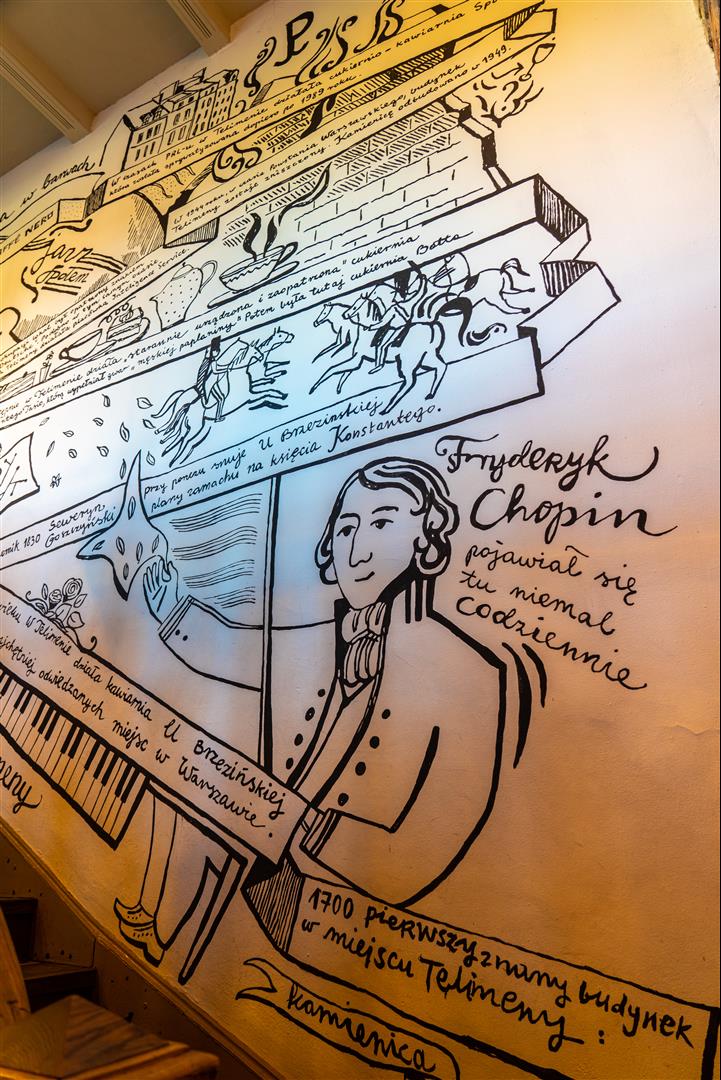 P
W czasach PRL-u w Telimenie działała cukiernio-kawiarnia
która została sprywatyzowana dopiero po 1989 roku.
w barwach
NERO
W 1944 roku, w czasie Powstania Warszawskiego, budynek
Telimeny zostaje zniszczony. Kamienicę odbudowano w 1949.
Jazz
Potem
w Telimenie działa "starannie urządzona i zaopatrzona" cukiernia
"męskiej paplaniny". Potem była tutaj cukiernia
przy ponczu snuje U Brzezińskiej
plany zamachu na księcia Konstantego.
1830 Seweryn
Goszczyński
Fryderyk
Chopin
pojawiał się
tu niemal
codziennie
w Telimenie działa kawiarnia U Brzezińskiej
odwiedzanych miejsc w Warszawie.
1700 pierwszy znany budynek
w miejscu Telimeny:
kamienica